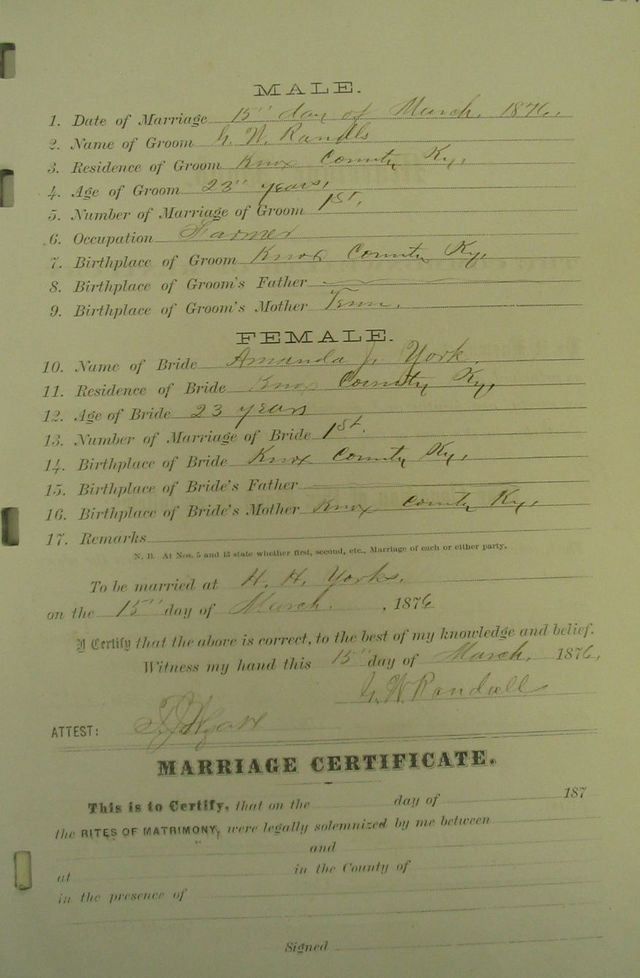 MALE.
1. Date of Marriage 15" day of March, 1876.
2. Name of Groom G. W. Randls
3. Residence of Groom Knox County Ky,
4. Age of Groom 23" years,
5. Number of Marriage of Groom 1st,
6. Occupation Farmer
7. Birthplace of Groom Knox County Ky,
8. Birthplace of Groom's Father
9. Birthplace of Groom's Mother Tenn.
FEMALE.
10. Name of Bride Amanda J. York.
11. Residence of Bride Knox County Ky,
12. Age of Bride 23 years
13. Number of Marriage of Bride 1st.
14. Birthplace of Bride Knox County Ky,
15. Birthplace of Bride's Father
16. Birthplace of Bride's Mother Knox County Ky,
17. Remarks
N. B. At Nos. 5 and 13 state whether first, second, etc., Marriage of each or either party.
To be married at H. H. Yorks,
on the 15" day of March. , 1876
I Certify that the above is correct, to the best of my knowledge and belief.
Witness my hand this 15" day of March, 1876,
G. W. Randall
ATTEST:
MARRIAGE CERTIFICATE.
This is to Certify, that on the day of 187
the RITES OF MATRIMONY, were legally solemnized by me between
and
at in the County of
in the presence of
Signed